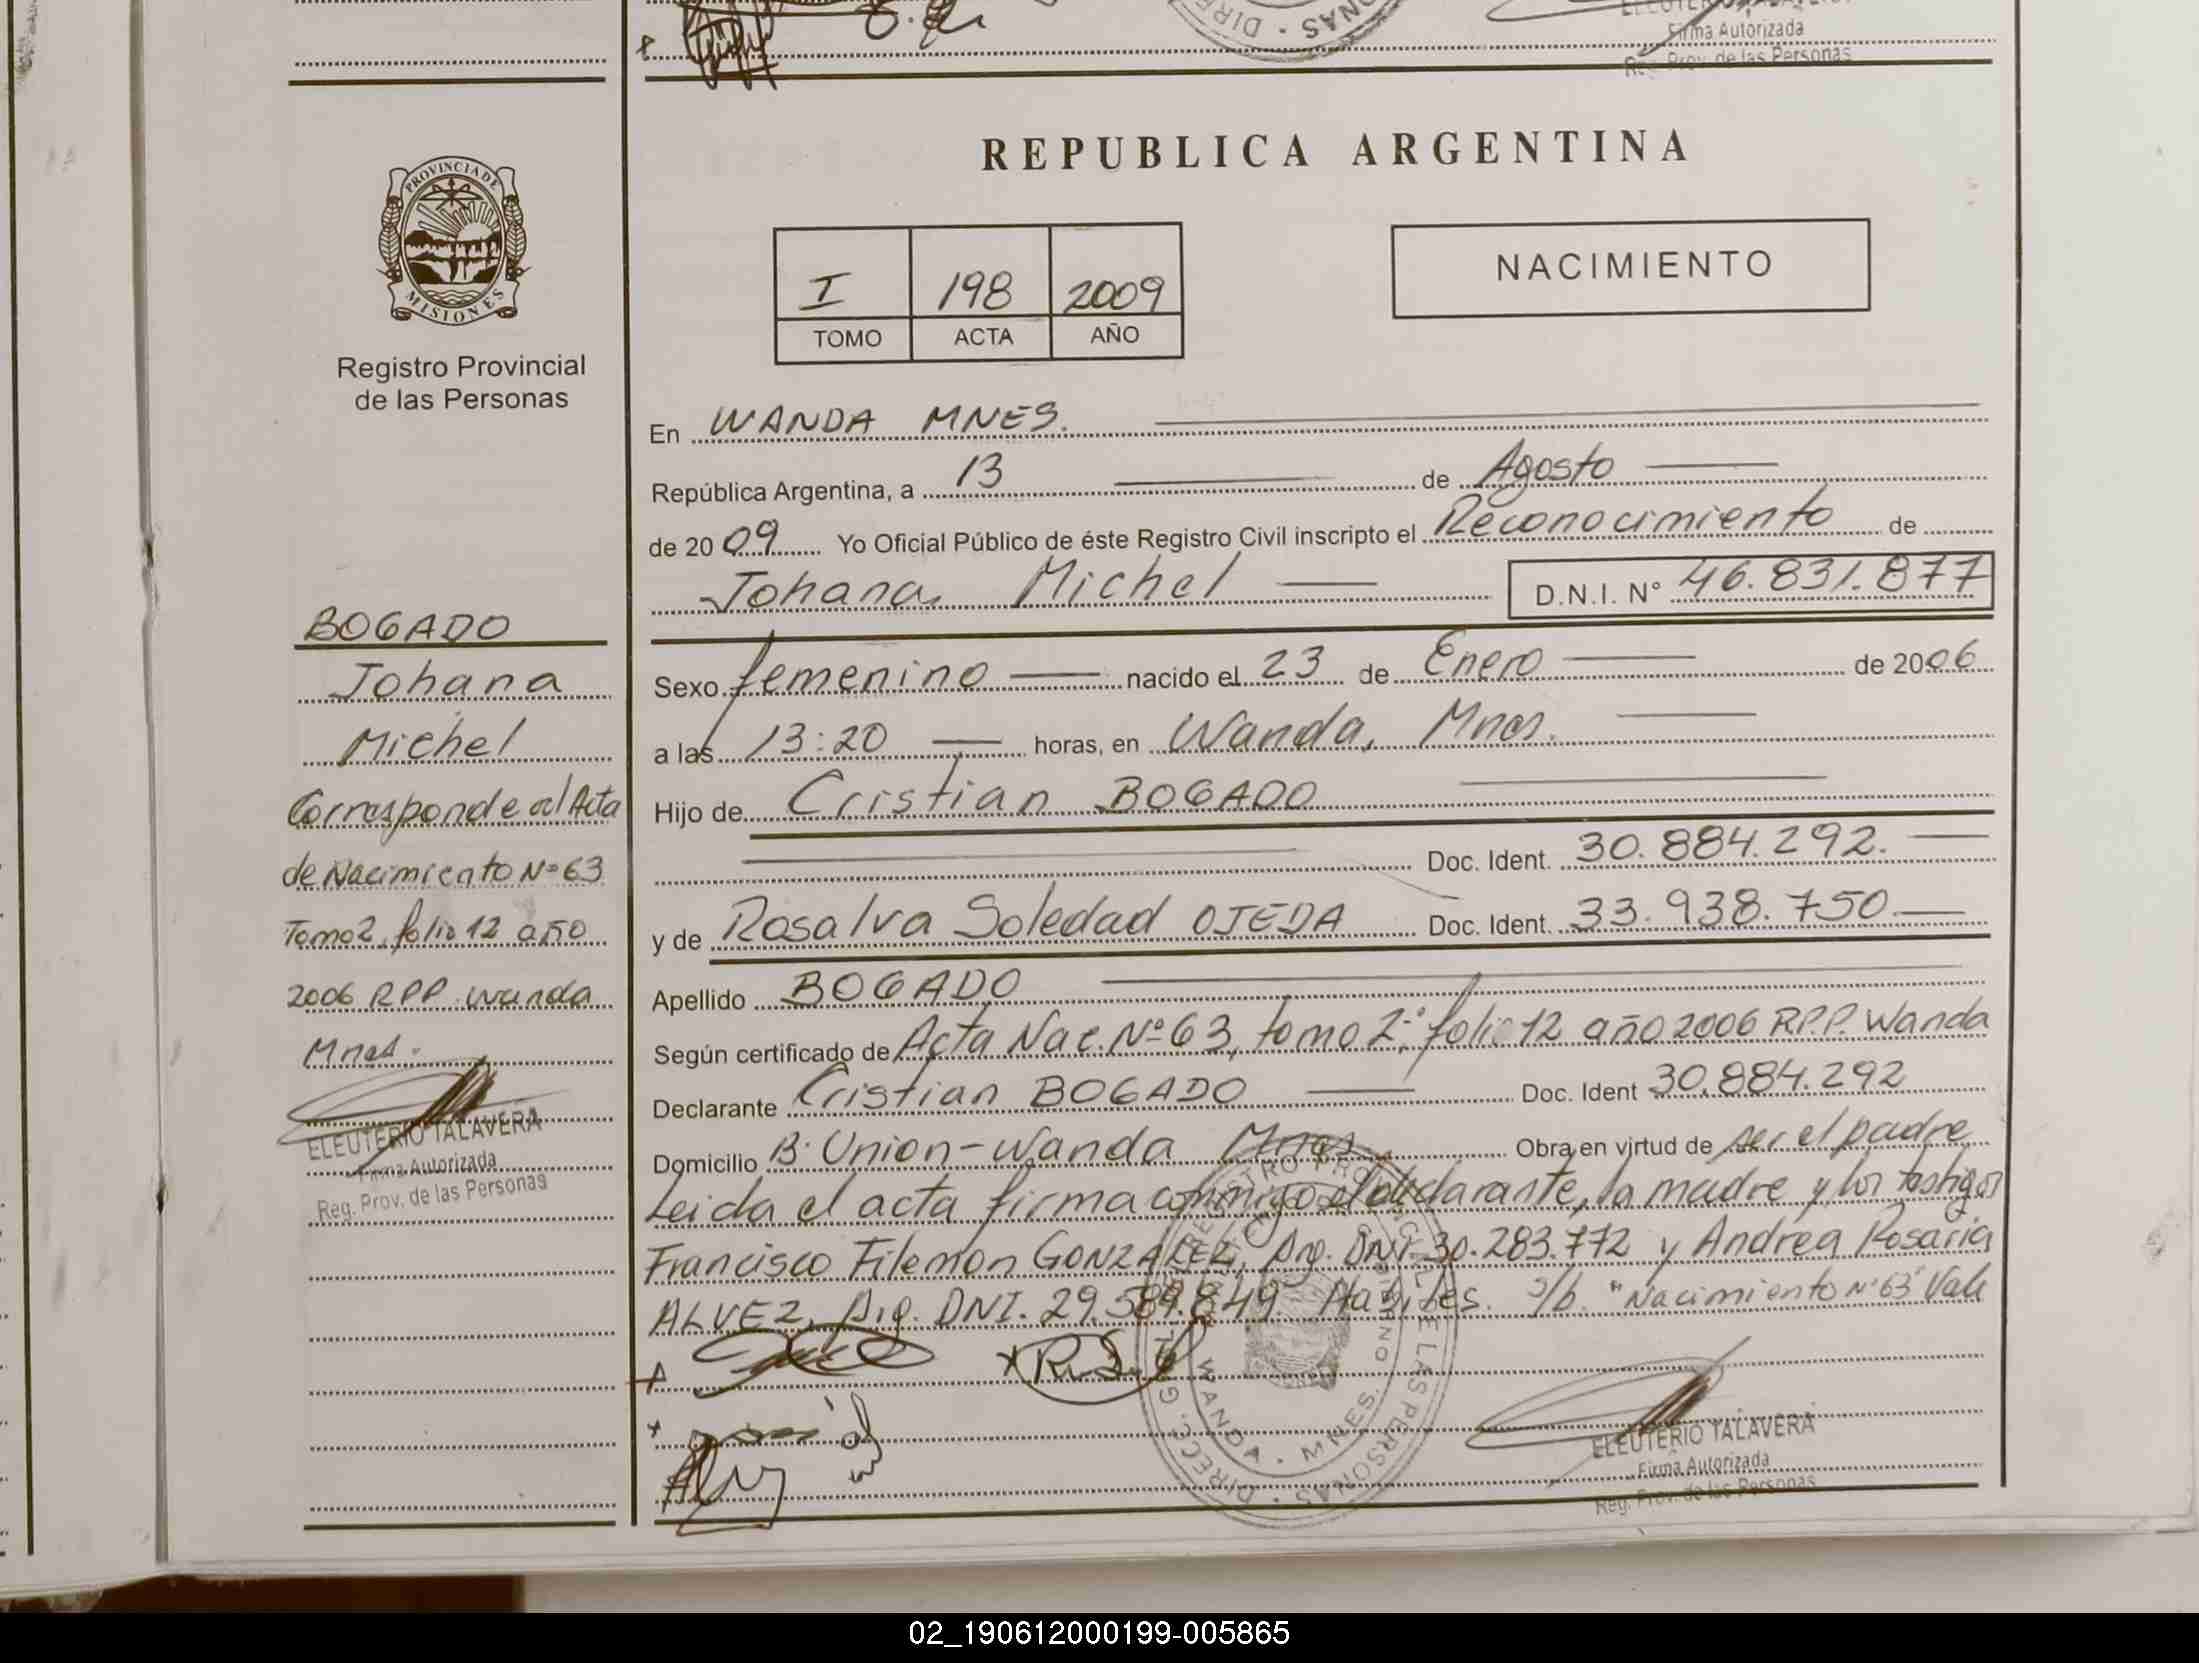 Firma Autorizada
Reg. Prov. de las Personas
PROVINCIA DE
MISIONES
Registro Provincial
de las Personas
BOGADO
Johana
Michel
Corresponde al Acta
de Nacimiento Nº 63
Tomo 2, folio 12 año
2006 R.P.P. Wanda
Mnes.
ELEUTERIO TALAVERA
Firma Autorizada
Reg. Prov. de las Personas
REPUBLICA ARGENTINA
I 198 2009
TOMO ACTA AÑO
NACIMIENTO
En WANDA MNES.
República Argentina, a 13 de Agosto
de 2009 Yo Oficial Público de éste Registro Civil inscripto el Reconocimiento de
Johana Michel D.N.I. Nº 46.831.877
Sexo femenino nacido el 23 de Enero de 2006
a las 13:20 horas, en Wanda, Mnes.
Hijo de Cristian BOGADO
Doc. Ident. 30.884.292.
y de Rosalva Soledad OJEDA Doc. Ident. 33.938.750
Apellido BOGADO
Según certificado de Acta Nac. Nº 63, tomo 2, folio 12 año 2006 R.P.P. Wanda
Declarante Cristian BOGADO Doc. Ident 30.884.292
Domicilio B. Union - Wanda Mnes. Obra en virtud de ser el padre
Leida el acta firma conmigo el declarante, la madre y los testigos
Francisco Filemon GONZALEZ, Arg. DNI. 30.283.772 y Andrea Rosaria
ALVEZ, Arg. DNI. 29.589.849. Habiles. s/b. "Nacimiento Nº 63" Vale
WANDA · MNES.
ELEUTERIO TALAVERA
Firma Autorizada
Reg. Prov. de las Personas
02_190612000199-005865